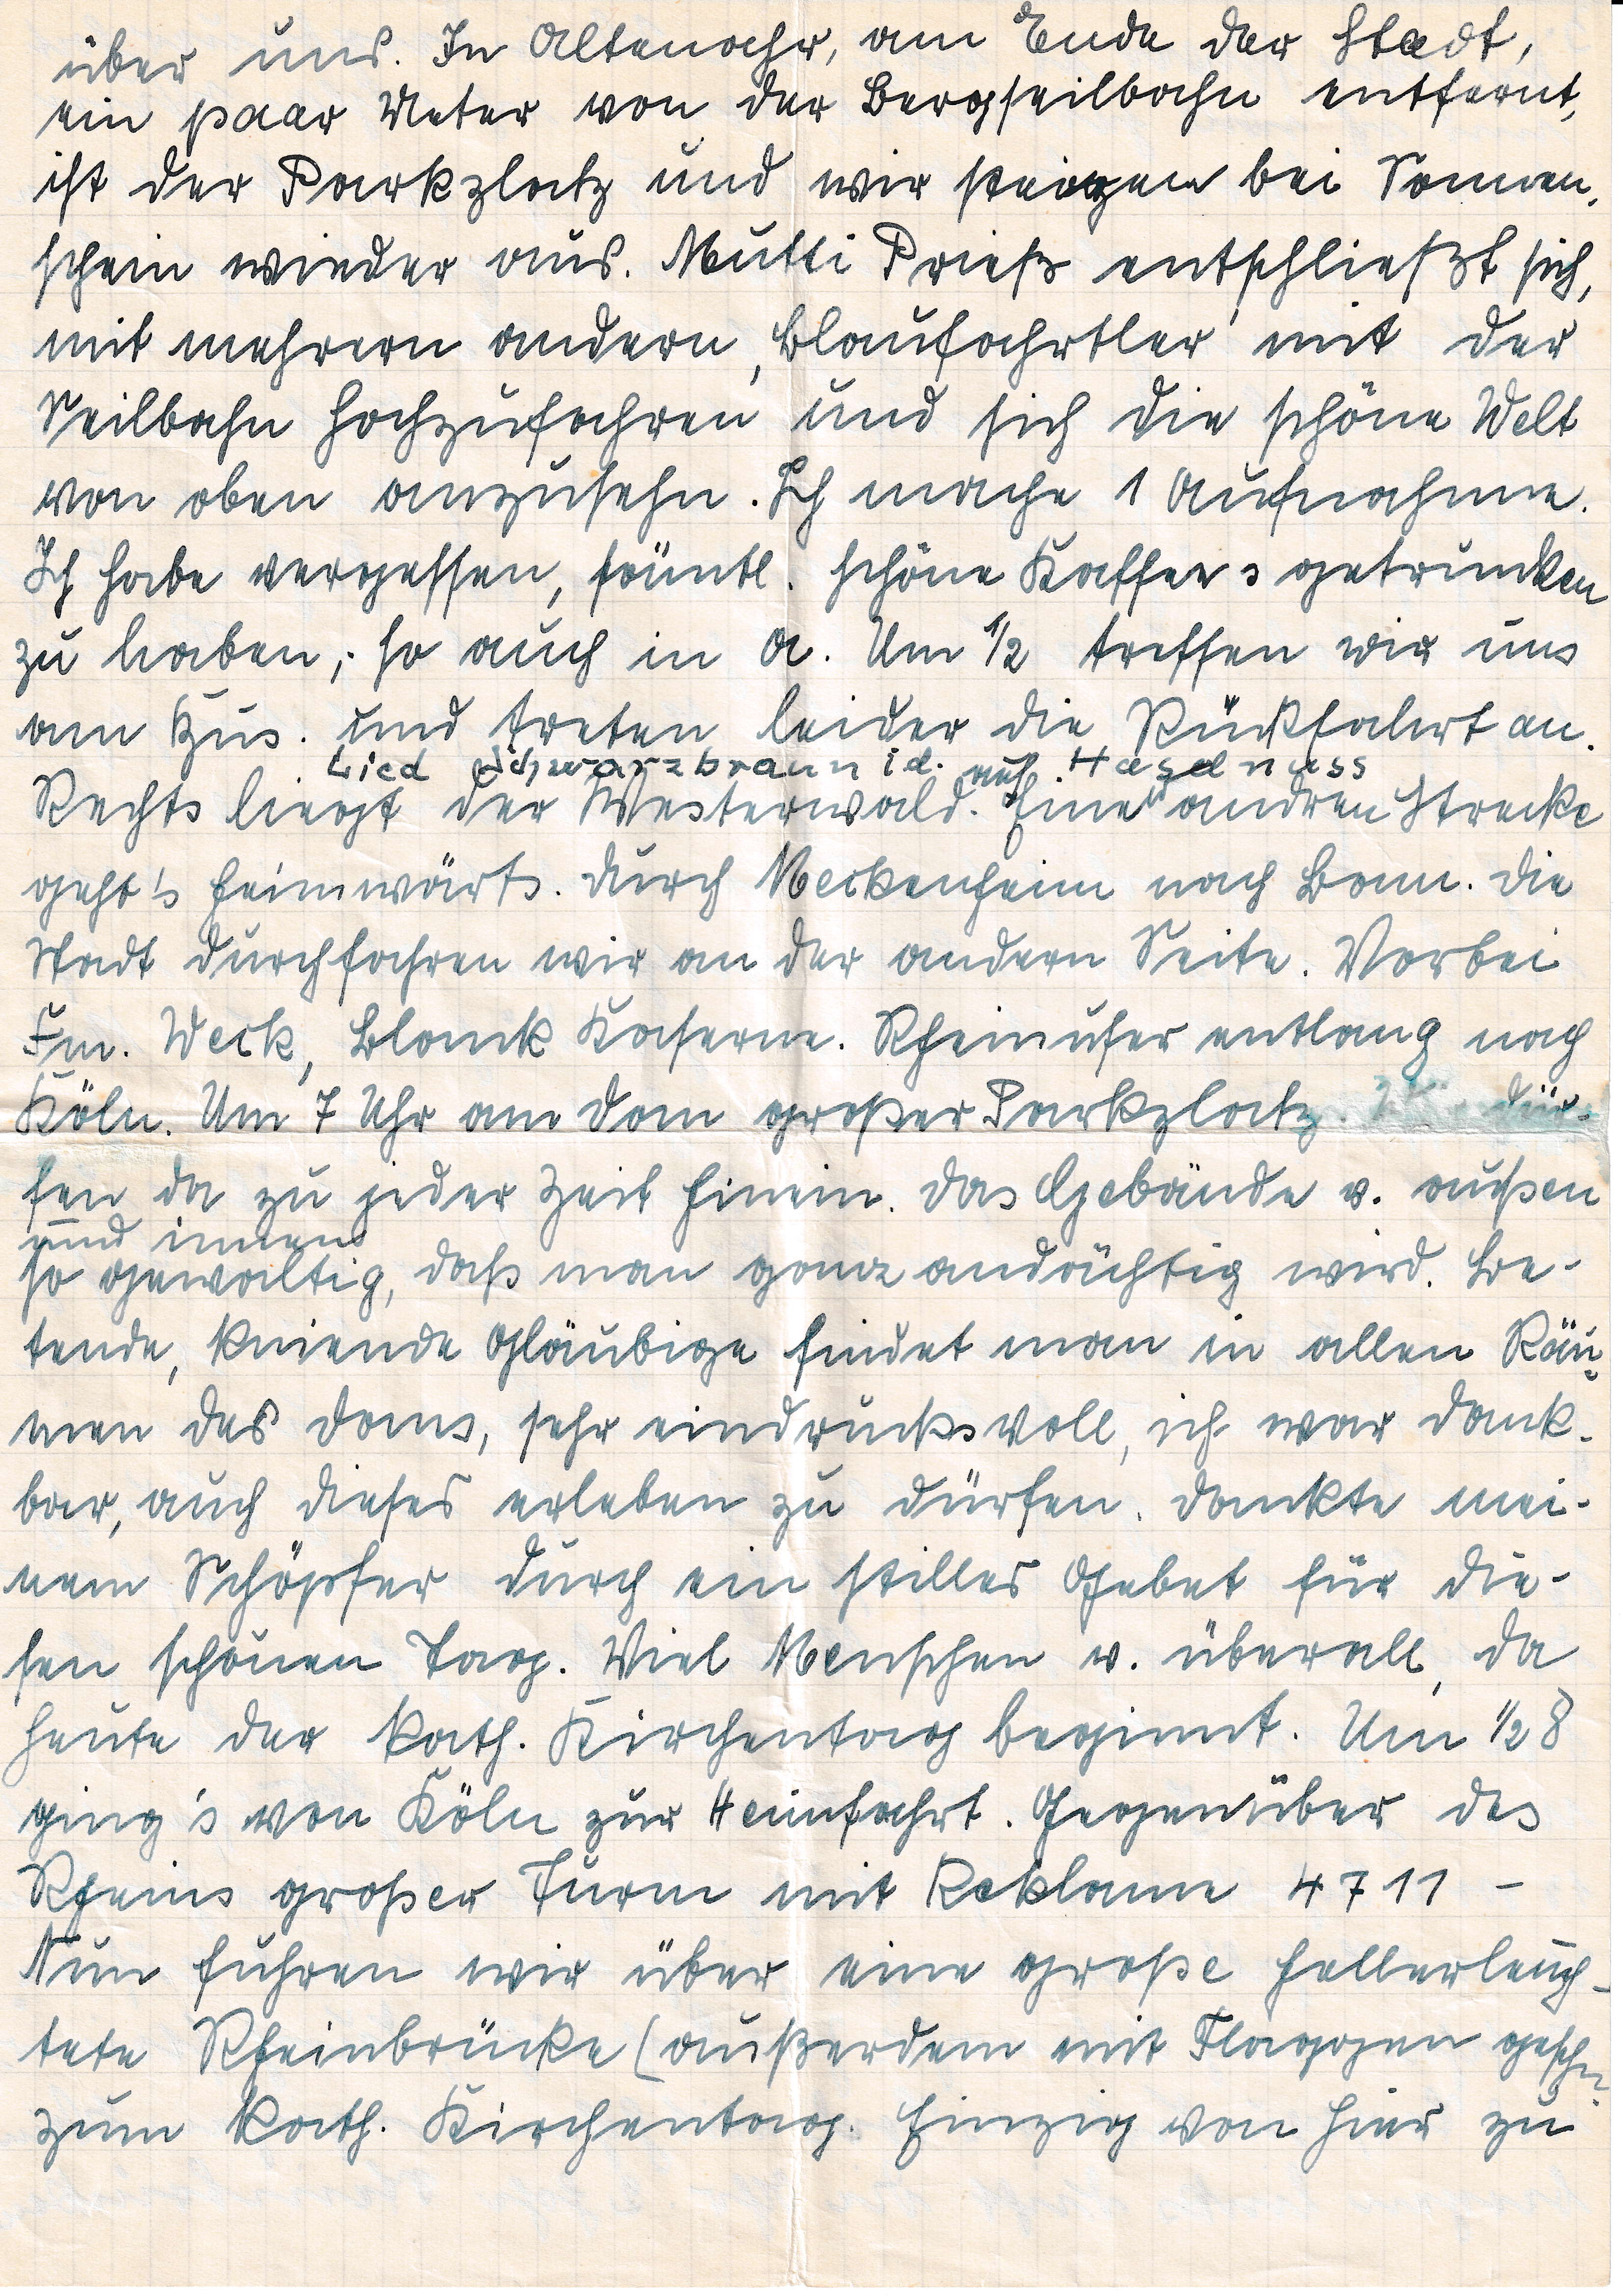 über uns. In Altenahr, am Ende der Stadt,
ein paar Meter von der Bergseilbahn entfernt,
ist der Parkplatz und wir steigen bei Sonnen-
schein wieder aus. Mutti Prieß entschließt sich,
mit mehrern andern „Blaufahrtler" mit der
Seilbahn hochzufahren und sich die schöne Welt
von oben anzusehn. Ich mache 1 Aufnahme.
Ich habe vergessen, sämtl. schöne Kaffee's getrunken
zu haben, so auch in A. Um ½ treffen wir uns
am Bus. und treten leider die Rückfahrt an.
Lied Schwarzbraun i. d. Haselnuss
Rechts liegt der Westerwald. auf Einer andren Strecke
geht's heimwärts. Durch Meckenheim nach Bonn. Die
Stadt durchfahren wir an der andern Seite. Vorbei
Fm. Weck, Blank Kaserne. Rheinufer entlang nach
Köln. Um 7 Uhr am Dom großer Parkplatz. dür-
fen da zu jeder Zeit hinein. Das Gebäude v. außen
und innen
so gewaltig, daß man ganz andächtig wird. Be-
tende, kniende Gläubige findet man in allen Räu-
men des Doms, sehr eindrucksvoll, ich war dank-
bar, auch dieses erleben zu dürfen. Dankte mei-
nem Schöpfer durch ein stilles Gebet für die-
sen schönen Tag. Viel Menschen w. überall, da
heute der kath. Kirchentag beginnt. Um ½ 8
ging's von Köln zur Heimfahrt. Gegenüber des
Rheins großer Turm mit Reklame 4711 -
Nun fuhren wir über eine große hellerleuch-
tete Rheinbrücke (außerdem mit Flaggen
zum kath. Kirchentag. Einzig von hier zu